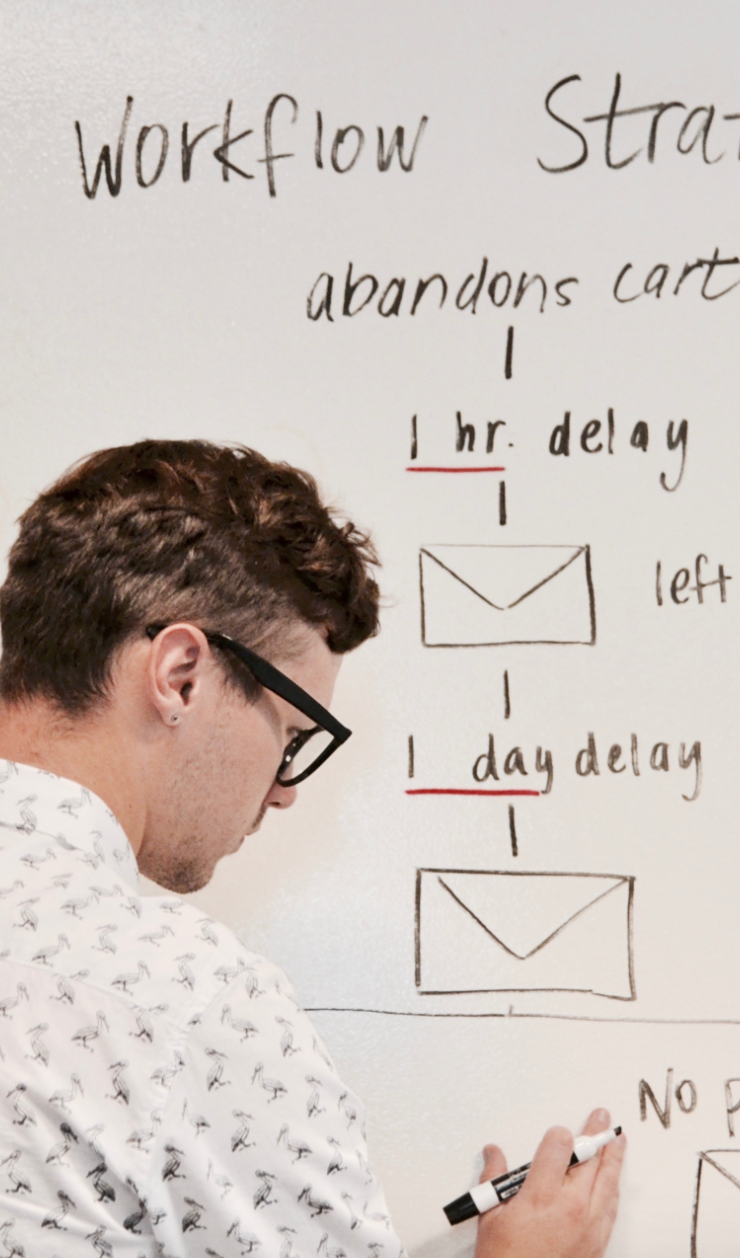 Workflow Strat
abandons cart
1 hr. delay
left
1 day delay
No p